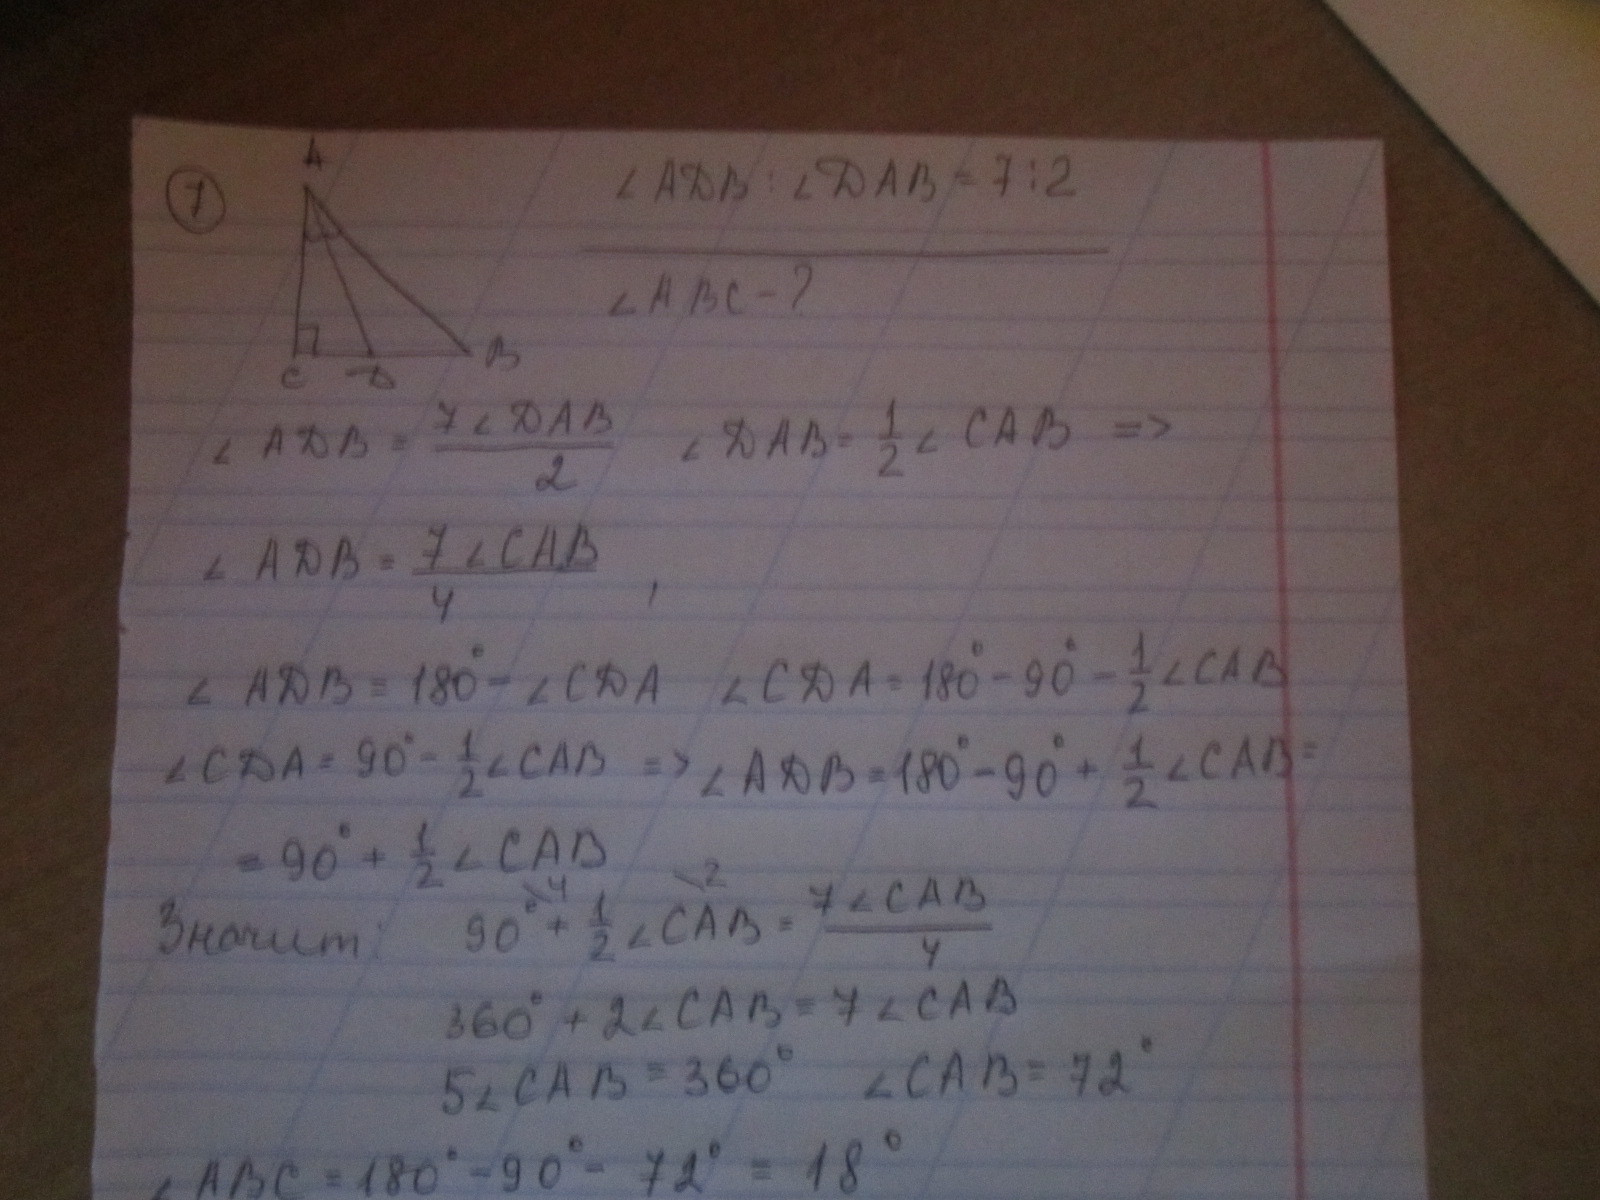 7
A
C D B
∠ADB : ∠DAB = 7 : 2
∠ABC - ?
∠ADB = 7∠DAB/2 ∠DAB = 1/2 ∠CAB =>
∠ADB = 7∠CAB/4 ,
∠ADB = 180° - ∠CDA ∠CDA = 180° - 90° - 1/2 ∠CAB
∠CDA = 90° - 1/2 ∠CAB => ∠ADB = 180° - 90° + 1/2 ∠CAB =
= 90° + 1/2 ∠CAB
Значит: 90°\4 + 1/2 ∠CAB\2 = 7∠CAB/4
360° + 2∠CAB = 7∠CAB
5∠CAB = 360° ∠CAB = 72°
∠ABC = 180° - 90° - 72° = 18°